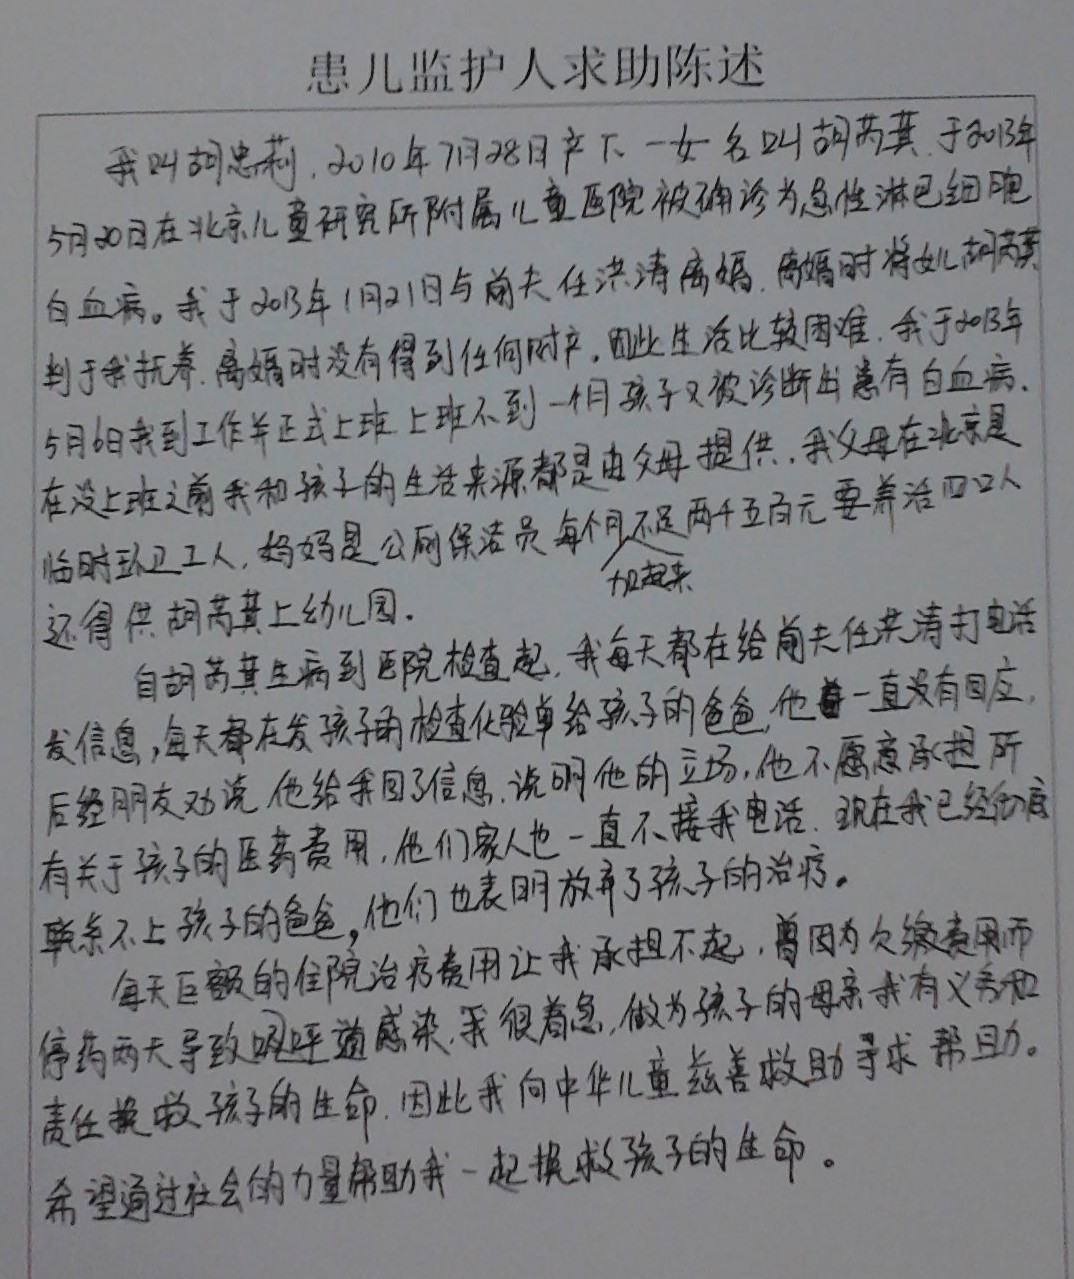 患儿监护人求助陈述
我叫胡忠莉，2010年7月28日产下一女名叫胡芮萁，于2013年
5月20日在北京儿童研究所附属儿童医院被确诊为急性淋巴细胞
白血病。我于2013年1月21日与前夫任洪涛离婚，离婚时将女儿胡芮萁
判于我抚养，离婚时没有得到任何财产。因此生活比较困难，我于2013年
5月6日我到工作并正式上班 上班不到一个月孩子又被诊断出患有白血病，
在没上班之前我和孩子的生活来源都是由父母提供，我父母在北京是
临时环卫工人，妈妈是公厕保洁员 每个月不足两千五百元要养活四口人
加起来
还得供胡芮萁上幼儿园。
自胡芮萁生病到医院检查起，我每天都在给前夫任洪涛打电话
发信息，每天都在发孩子的检查化验单给孩子的爸爸，他一直没有回应，
后经朋友劝说 他给我回了信息，说明他的立场，他不愿意承担所
有关于孩子的医药费用，他们家人也一直不接我电话，现在我已经彻底
联系不上孩子的爸爸，他们也表明放弃了孩子的治疗。
每天巨额的住院治疗费用让我承担不起，曾因为欠缴费用而
停药两天导致吸呼道感染，我很着急，做为孩子的母亲我有义务和
责任挽救孩子的生命，因此我向中华儿童慈善救助寻求帮助。
希望通过社会的力量帮助我一起挽救孩子的生命。